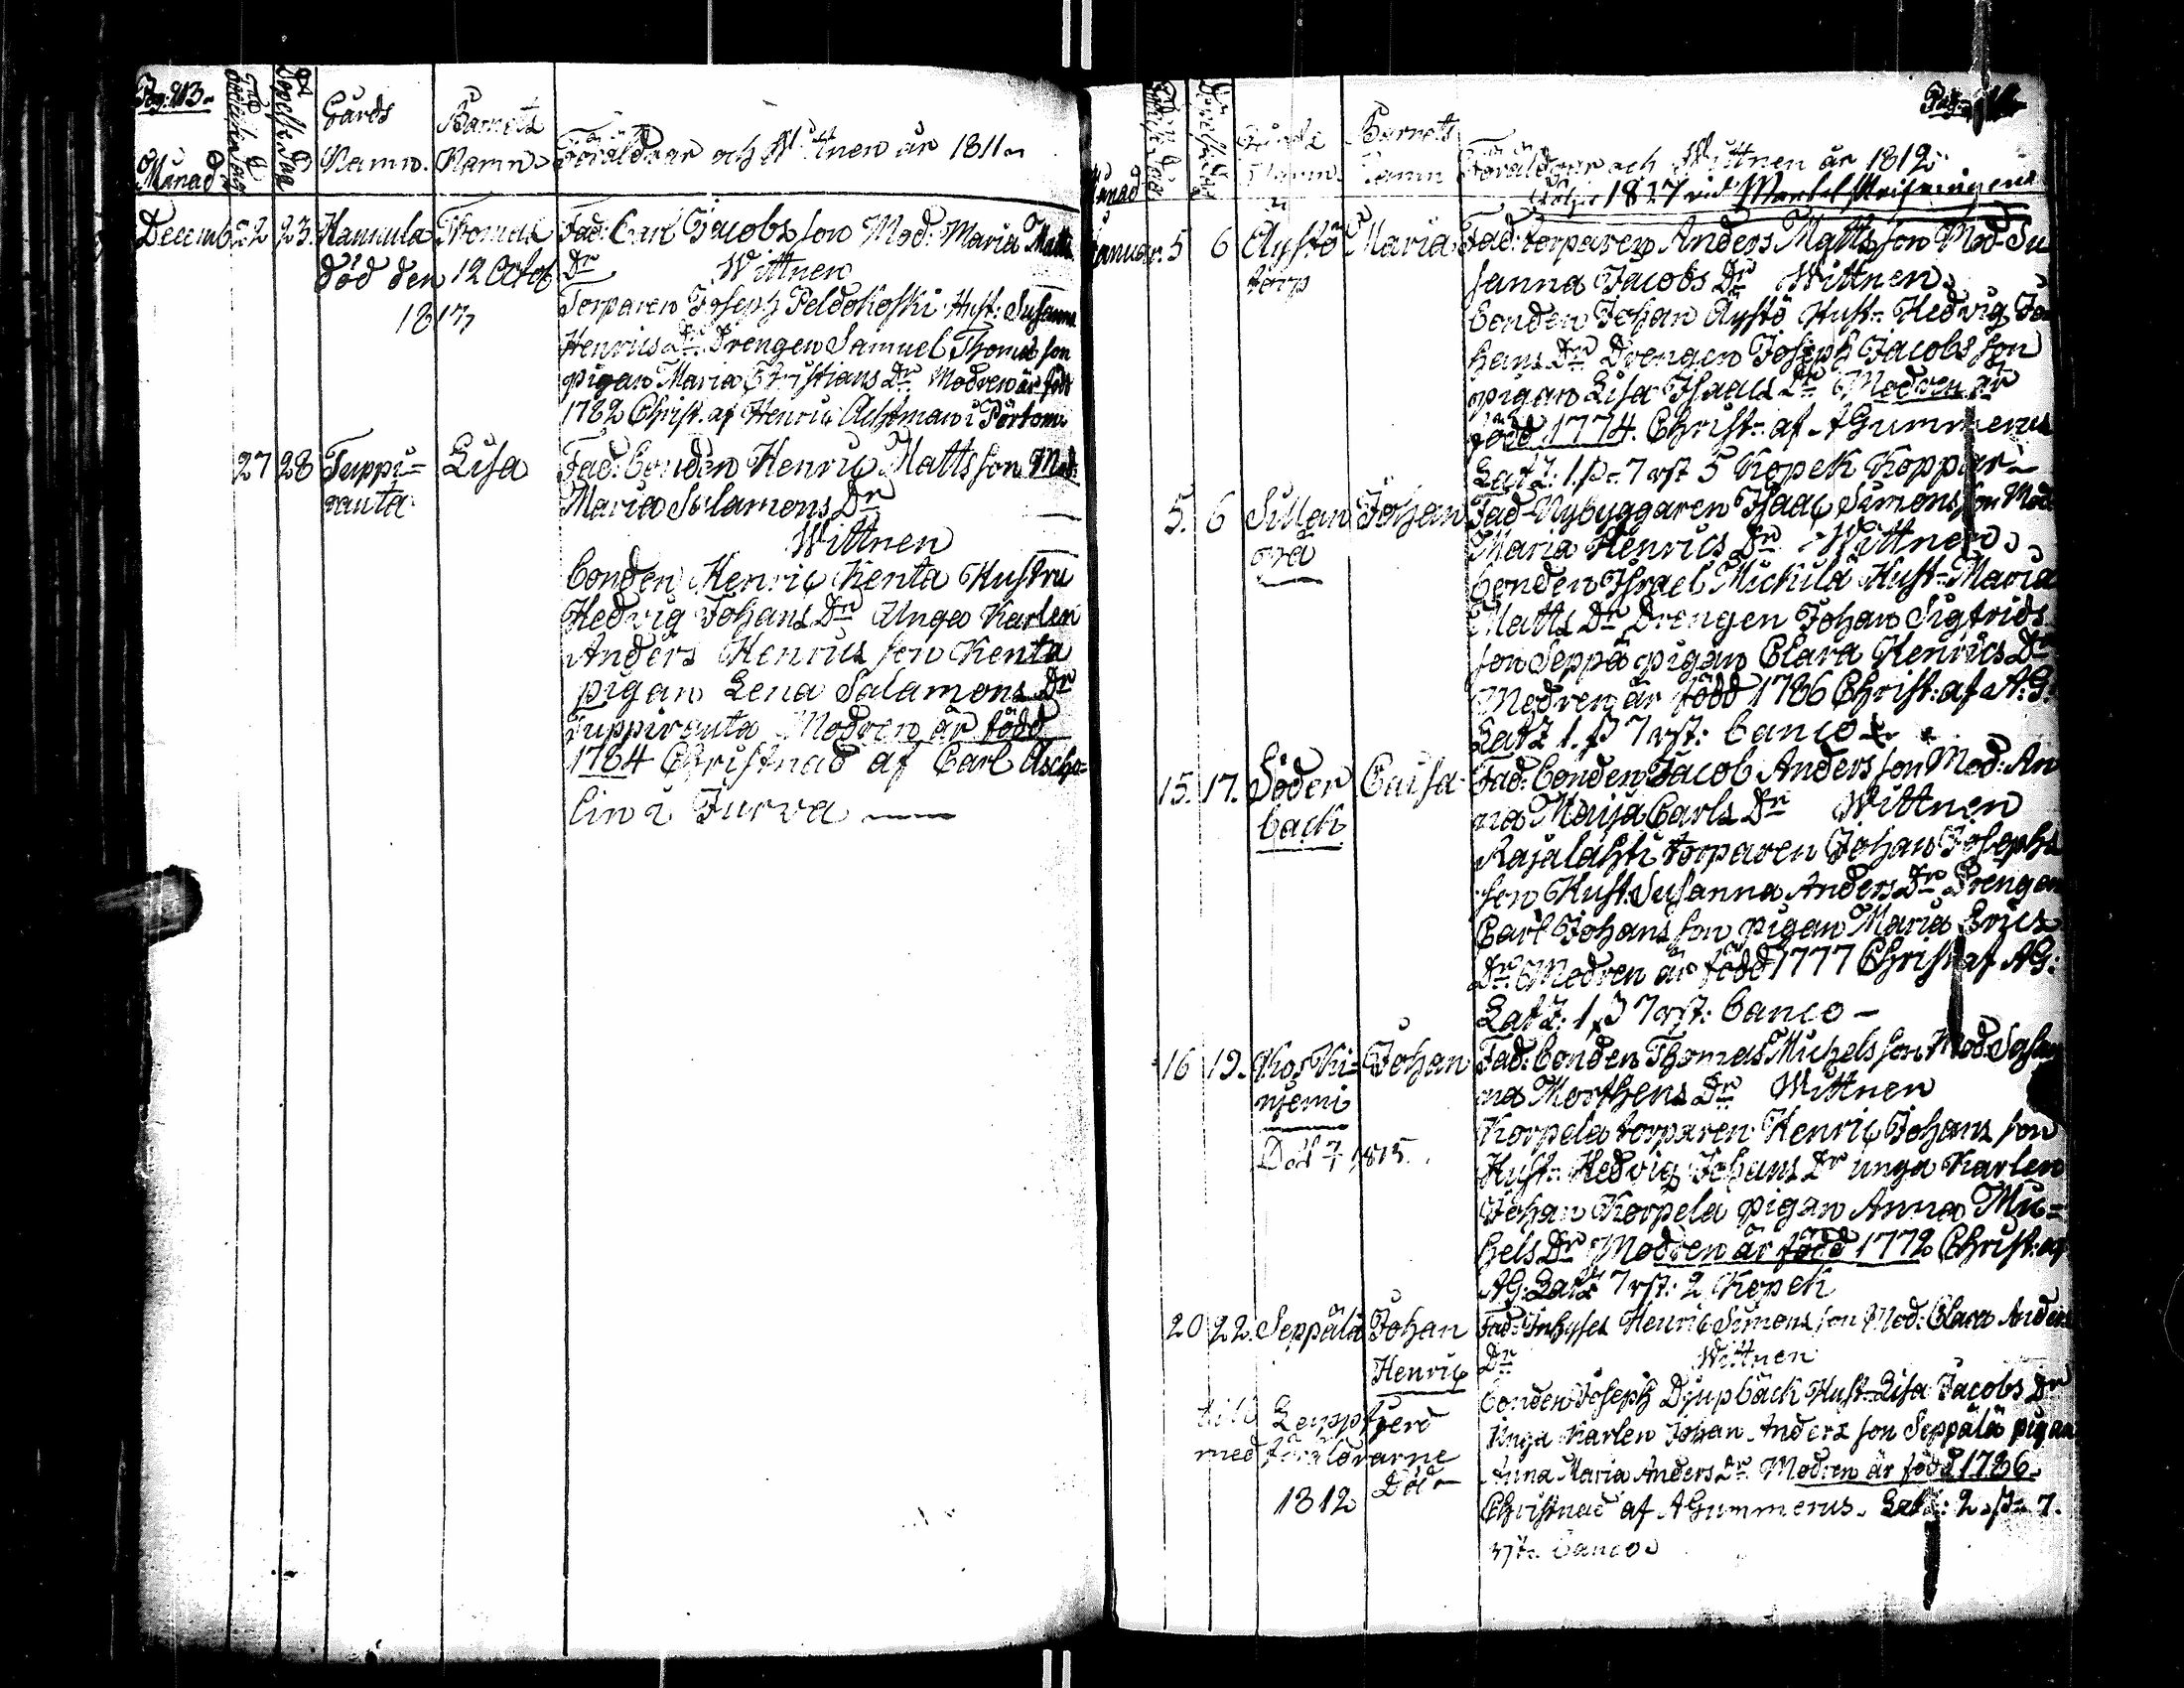 Pag: 213.
Månad
Födelse dag
Döpelse Dag
Gårds Namn.
Barnets Namn
Föräldrar och Wittnen år 1811.
Decemb. 22 23. Hannula Thomas Fad: Carl Jacobs son Mod: Maria Matts
död den 12 Octob Dr Wittnen
1817 Torparen Joseph Peldokoski Hust: Susanna
Henrics Dr Drengen Samuel Thomas son
pigan Maria Christians Dr Modren är född
1782 Christ. af Henric Achtman i Pörtom.
27 28 Tuppi= Lisa Fad: bonden Henric Matts son Mod:
ranta Maria Salamons Dr
Wittnen
bonden Henric Kenta Hustru
Hedvig Johans Dr Unga Karlen
Anders Henrics son Kenta
pigan Lena Salamons Dr
Tuppiranta Modren är född
1784 Christnad af Carl Ascho=
lin i Jurva
Pag:
Månad
Gårds Namn
Barnets Namn
Föräldrar och Wittnen år 1812
1817 vid
Januar. 5 6 Äystö Maria Fad: torparen Anders Matts son Mod: Su
torp sanna Jacobs Dr Wittnen
bonden Johan Äystö Hust: Hedvig Jo
hans Dr Drengen Joseph Jacobs son
pigan Lisa Isaacs Dr Modren är
född 1774. Christ: af A Gummerus
5 Kopek Koppar
5. 6 Johan Fad Nybyggaren Isaac Simons son Mod:
Maria Henrics Dr Wittnen
bonden Israel Mickilä Hust: Maria
Matts Dr Drengen Johan Sigfrids
son Seppä pigan Clara Henrics Dr
Modren är född 1786 Christ: af A.G.
banco
15. 17. Söder Caisa Fad: bonden Jacob Anders son Mod: An
back na Maija Carls Dr Wittnen
Rajalahti torparen Johan Josephs
son Hust: Susanna Anders Dr Drengen
Carl Johans son pigan Maria Erics
Dr Modren är född 1777 Christ af AG:
banco
16 19. Koski= Johan Fad: bonden Thomas Michels son Mod:
niemi na Morthens Dr Wittnen
Korpela torparen Henric Johans son
Död 7 1815. Hust: Hedvig Johans Dr unga Karlen
Johan Korpela pigan Anna Mic=
hels Dr Modren är född 1772 Christ: af
AG: 2 Kopek
20 22. Seppälä Johan Fad: Inhyses Henric Simons son Mod: Clara Anders
Henric Dr Wittnen
bonden Joseph Djupback Hust: Lisa Jacobs Dr
till Lappfjerd Unga Karlen Johan Anders son Seppälä pigan
med föräldrarne Anna Maria Anders Dr Modren är född 1786.
1812 Död Christnad af A Gummerus.
banco